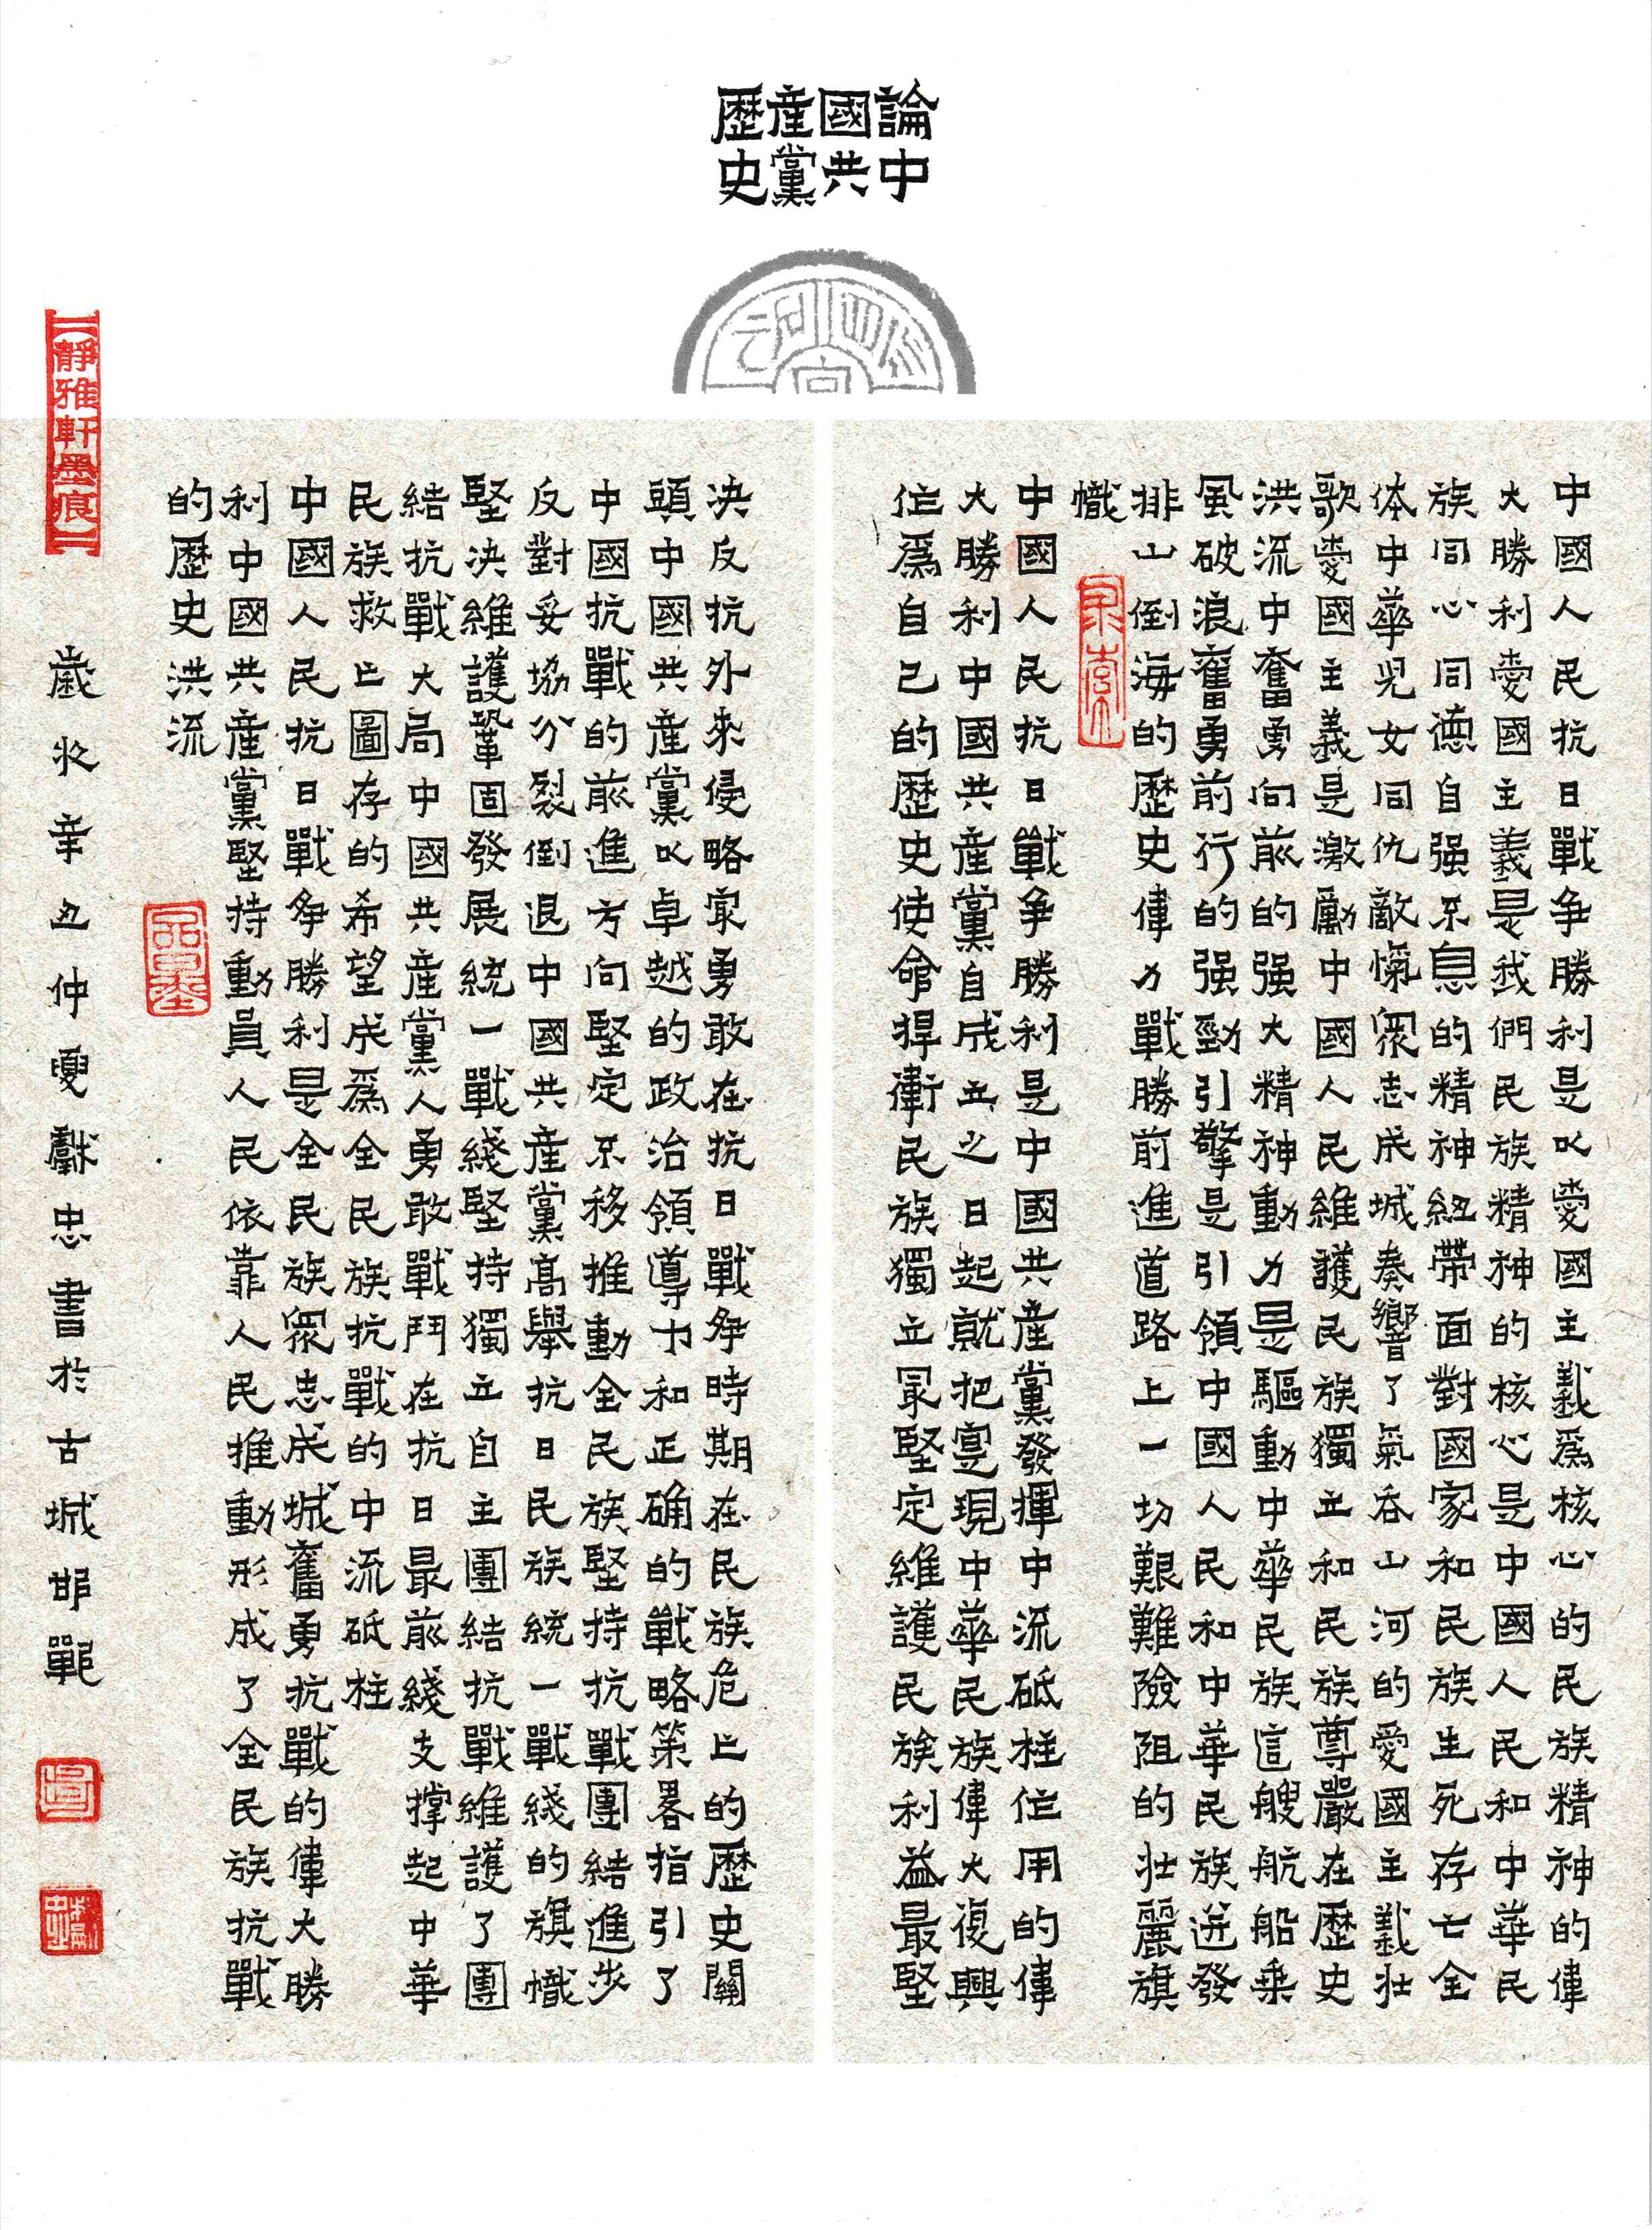 論中國共産黨歷史
中國人民抗日戰争勝利是以愛國主義爲核心的民族精神的偉
大勝利愛國主義是我們民族精神的核心是中國人民和中華民
族同心同德自强不息的精神紐帶面對國家和民族生死存亡全
体中華兒女同仇敵愾眾志成城奏響了氣吞山河的愛國主義壯
歌愛國主義是激勵中國人民維護民族獨立和民族尊嚴在歷史
洪流中奮勇向前的强大精神動力是驅動中華民族這艘航船乘
風破浪奮勇前行的强勁引擎是引領中國人民和中華民族迸發
排山倒海的歷史偉力戰勝前進道路上一切艱難險阻的壯麗旗
幟
中國人民抗日戰争勝利是中國共産黨發揮中流砥柱作用的偉
大勝利中國共産黨自成立之日起就把實現中華民族偉大復興
作爲自己的歷史使命捍衛民族獨立最堅定維護民族利益最堅
决反抗外來侵略最勇敢在抗日戰争時期在民族危亡的歷史關
頭中國共産黨以卓越的政治領導力和正确的戰略策略指引了
中國抗戰的前進方向堅定不移推動全民族堅持抗戰團結進步
反對妥協分裂倒退中國共産黨高舉抗日民族統一戰綫的旗幟
堅决維護鞏固發展統一戰綫堅持獨立自主團結抗戰維護了團
結抗戰大局中國共産黨人勇敢戰鬥在抗日最前綫支撑起中華
民族救亡圖存的希望成爲全民族抗戰的中流砥柱
中國人民抗日戰争勝利是全民族眾志成城奮勇抗戰的偉大勝
利中國共産黨堅持動員人民依靠人民推動形成了全民族抗戰
的歷史洪流
靜雅軒墨痕
歲次辛丑仲夏獻忠書於古城邯鄲